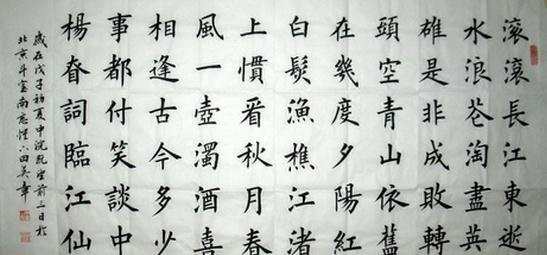 滾滾長江東逝
水浪花淘盡英
雄是非成敗轉
頭空青山依舊
在幾度夕陽紅
白髮漁樵江渚
上慣看秋月春
風一壺濁酒喜
相逢古今多少
事都付笑談中
楊昚詞臨江仙
歲在戊子初夏中浣既望前三日於
北京斗室南窓田英章